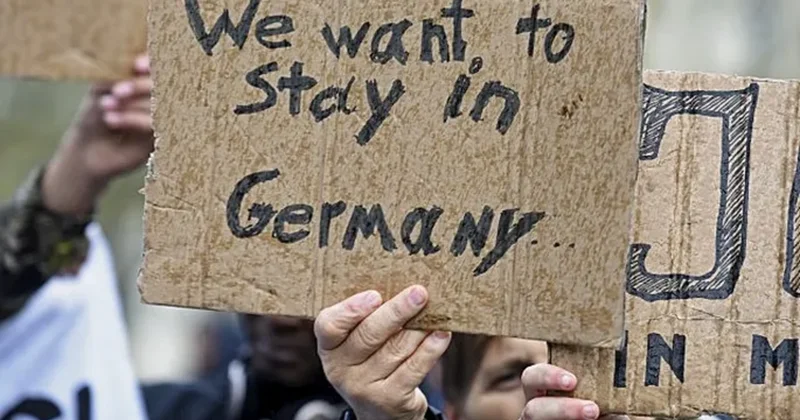 We want to
stay in
Germany...
IN M